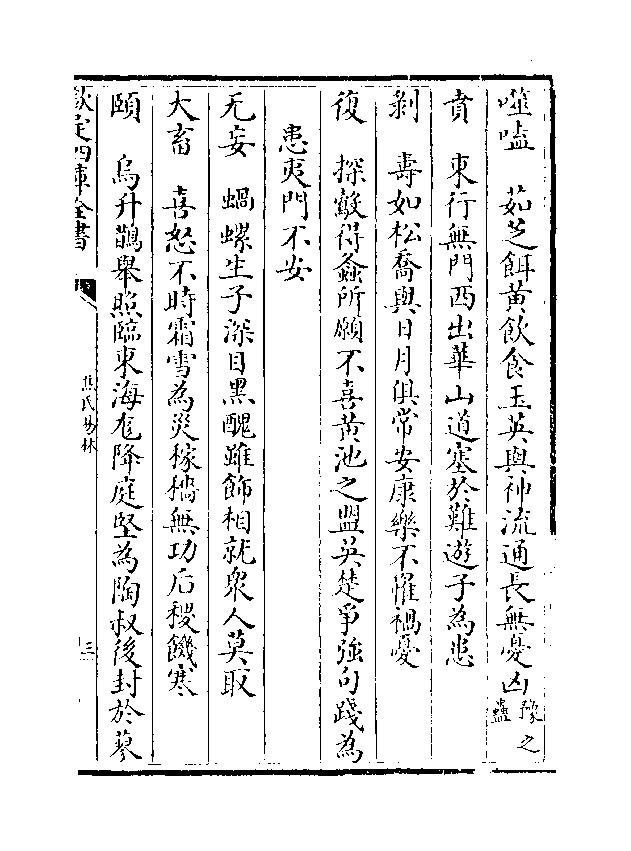 噬嗑　茹芝餌黃飲食玉英與神流通長無憂凶豫之蠱
賁　東行無門西出華山道塞於難遊子為患
剝　壽如松喬與日月俱常安康樂不罹禍憂
復　探鷇得蠡所願不喜黃池之盟英楚爭強句踐為
患夷門不安
无妄　蝸螺生子深目黑醜雖飾相就衆人莫取
大畜　喜怒不時霜雪為災稼穡無功后稷饑寒
頤　烏升鵲舉照臨東海尨降庭堅為陶叔後封於蓼
欽定四庫全書
焦氏易林
三